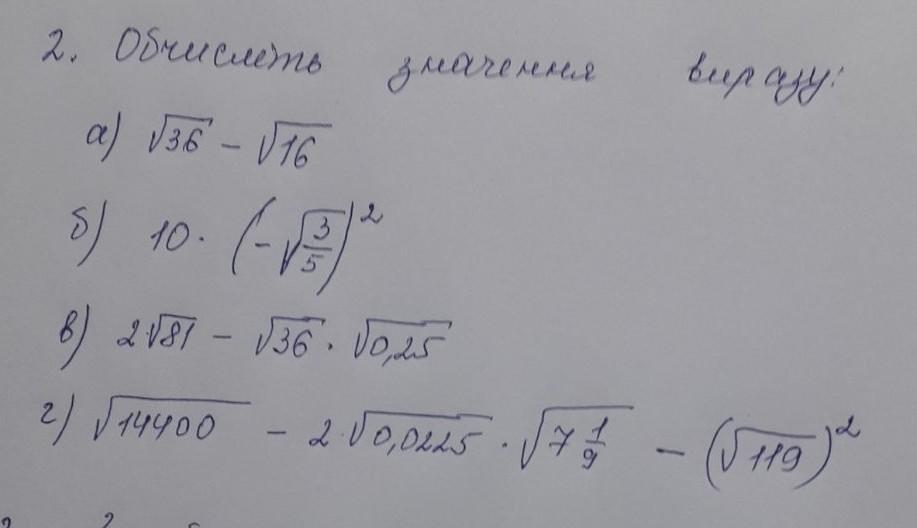 2. Обчисліть значення виразу:
а) √36 − √16
б) 10 · (−√(3/5))²
в) 2√81 − √36 · √0,25
г) √14400 − 2·√0,0225 · √(7 1/9) − (√119)²